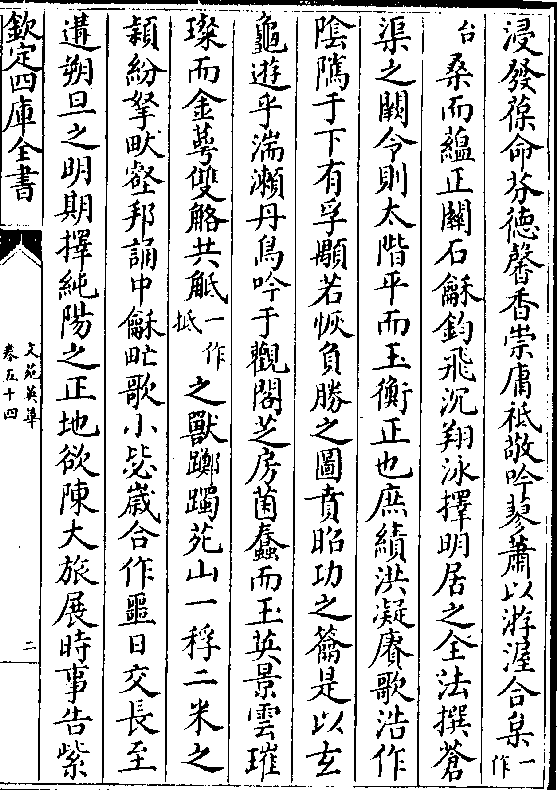 浸發葆命芬德馨香崇庸祗敬吟蓼蕭以游渥合臬一作
台桑而蘊正關石龢鈞飛沉翔泳擇明居之全法撰蒼
渠之闕令則太階平而玉衡正也庶績洪凝賡歌浩作
陰隲于下有孚顒若恢負勝之圖賁昭功之籥是以玄
龜遊乎湍瀨丹鳥吟于觀閣芝房菌蠢而玉英景雲璀
璨而金萼雙觡共觝一作抵之獸躑躅苑山一稃二米之
穎紛拏畎壑邦誦中龢甿歌小毖歲合作噩日交長至
遘朔旦之明期擇純陽之正地欲陳大旅展時事告紫
欽定四庫全書
文苑英華
卷五十四
二